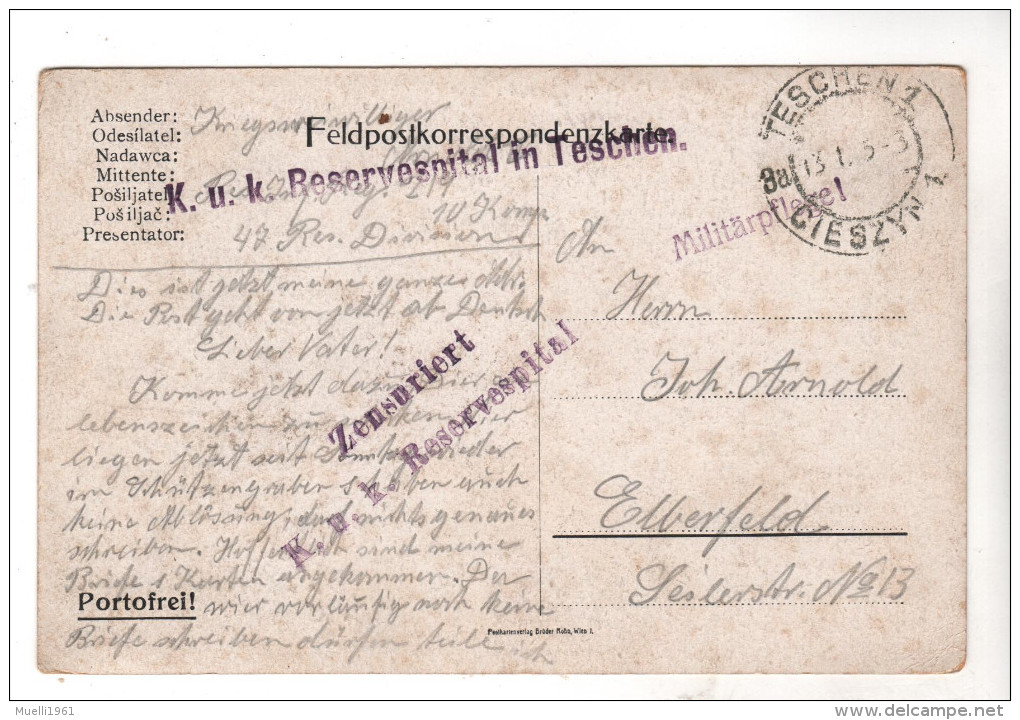 Absender:
Odesílatel:
Nadawca:
Mittente:
Pošiljatel
Pošiljač:
Presentator:
Kriegsfreiwilliger
Feldpostkorrespondenzkarte.
K. u. k. Reservespital in Teschen.
10 Komp
47 Res. Division
TESCHEN 1
CIESZYN 1
Militärpflege!
Dies ist jetzt meine ganze Adr.
Die Post geht von jetzt ab Deutsch
Lieber Vater!
Komme jetzt dazu
lebenszeichen zu
liegen jetzt seit Sonntag wieder
im Schützengraben haben auch
keine Ablösung, darf nichts genaues
schreiben. Hoffentlich sind meine
Briefe & Karten angekommen. Da
Portofrei!
wier vorläufig noch keine
Briefe schreiben dürfen teile ich
Zensuriert
K. u. k. Reservespital
An
Herrn
Joh. Arnold
Elberfeld
Seilerstr. No 13
Postkartenverlag Brüder Kohn, Wien I.
Muelli1961
delcampe.net